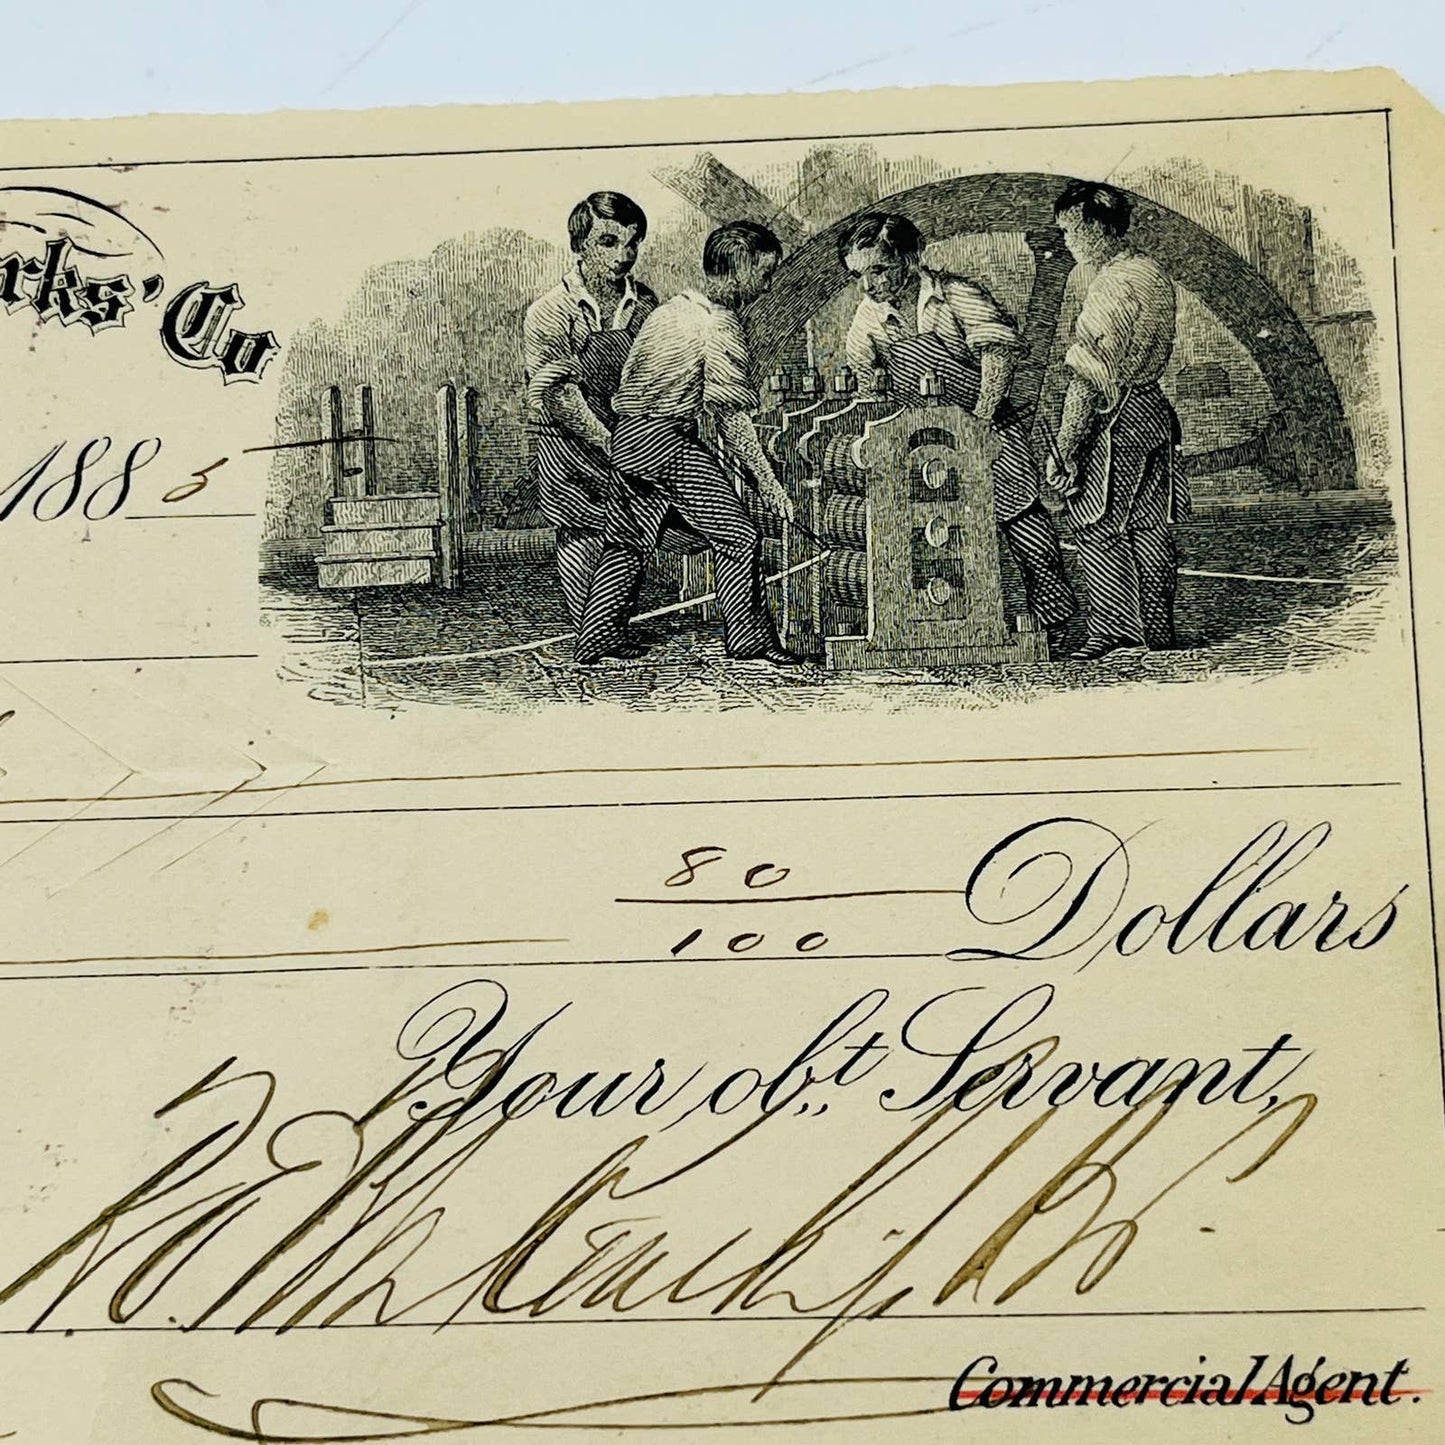 rks' Co
1885
80
100 Dollars
Your obt. Servant,
Commercial Agent.